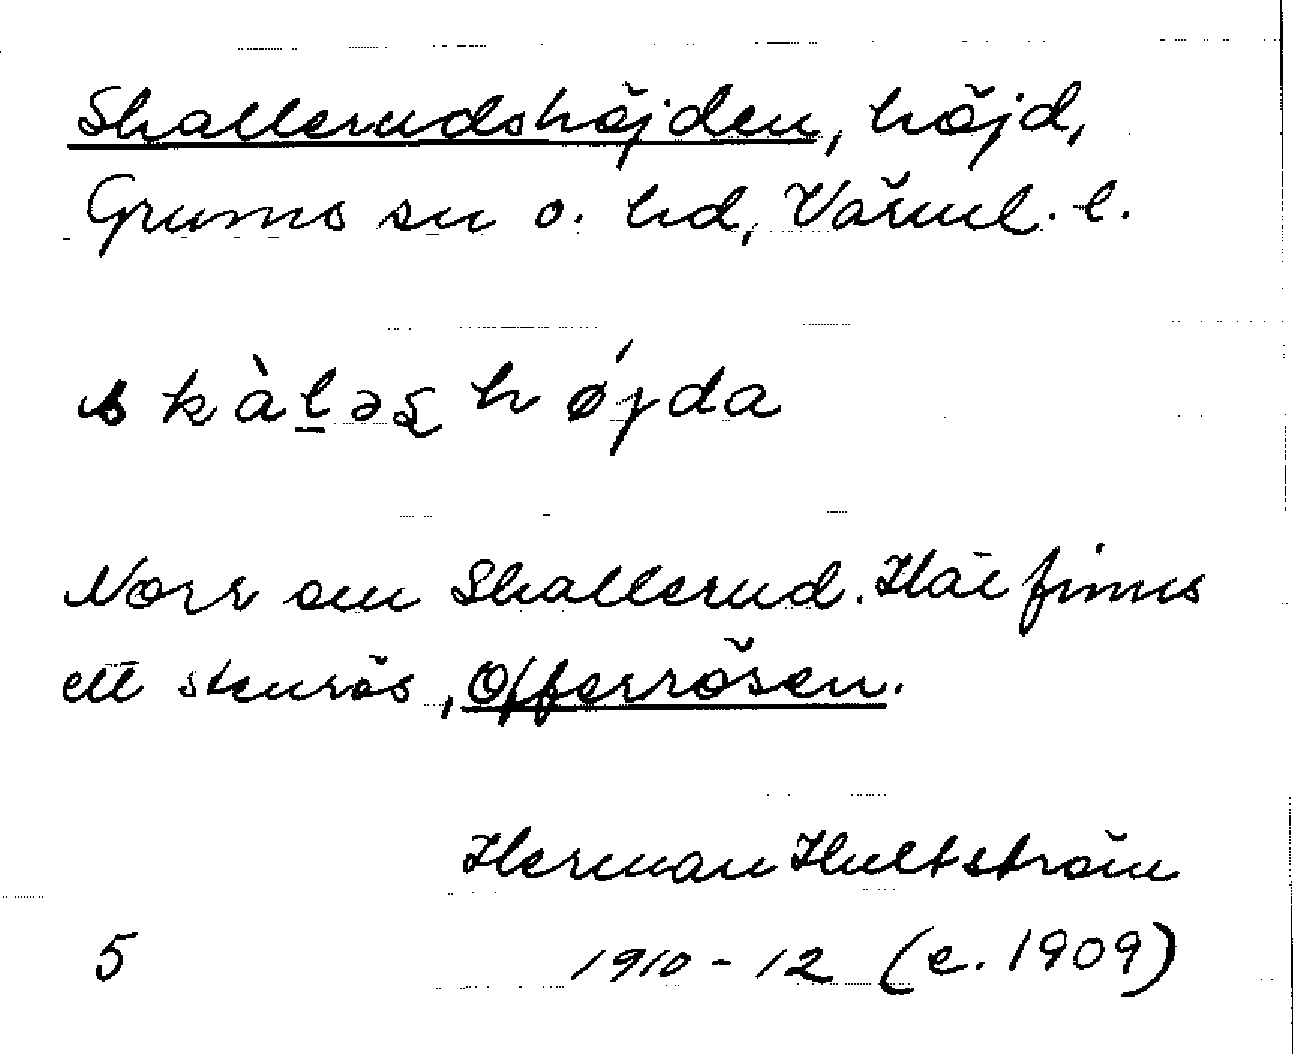 Skallerudshöjden, höjd,
Grums sn o. hd, Värml. l.
skàl̠əʂ hǿjda
Norr om Skallerud. Här finns
ett stenrös, Offerrösen.
Herman Hultström
5 1910-12 (e. 1909)